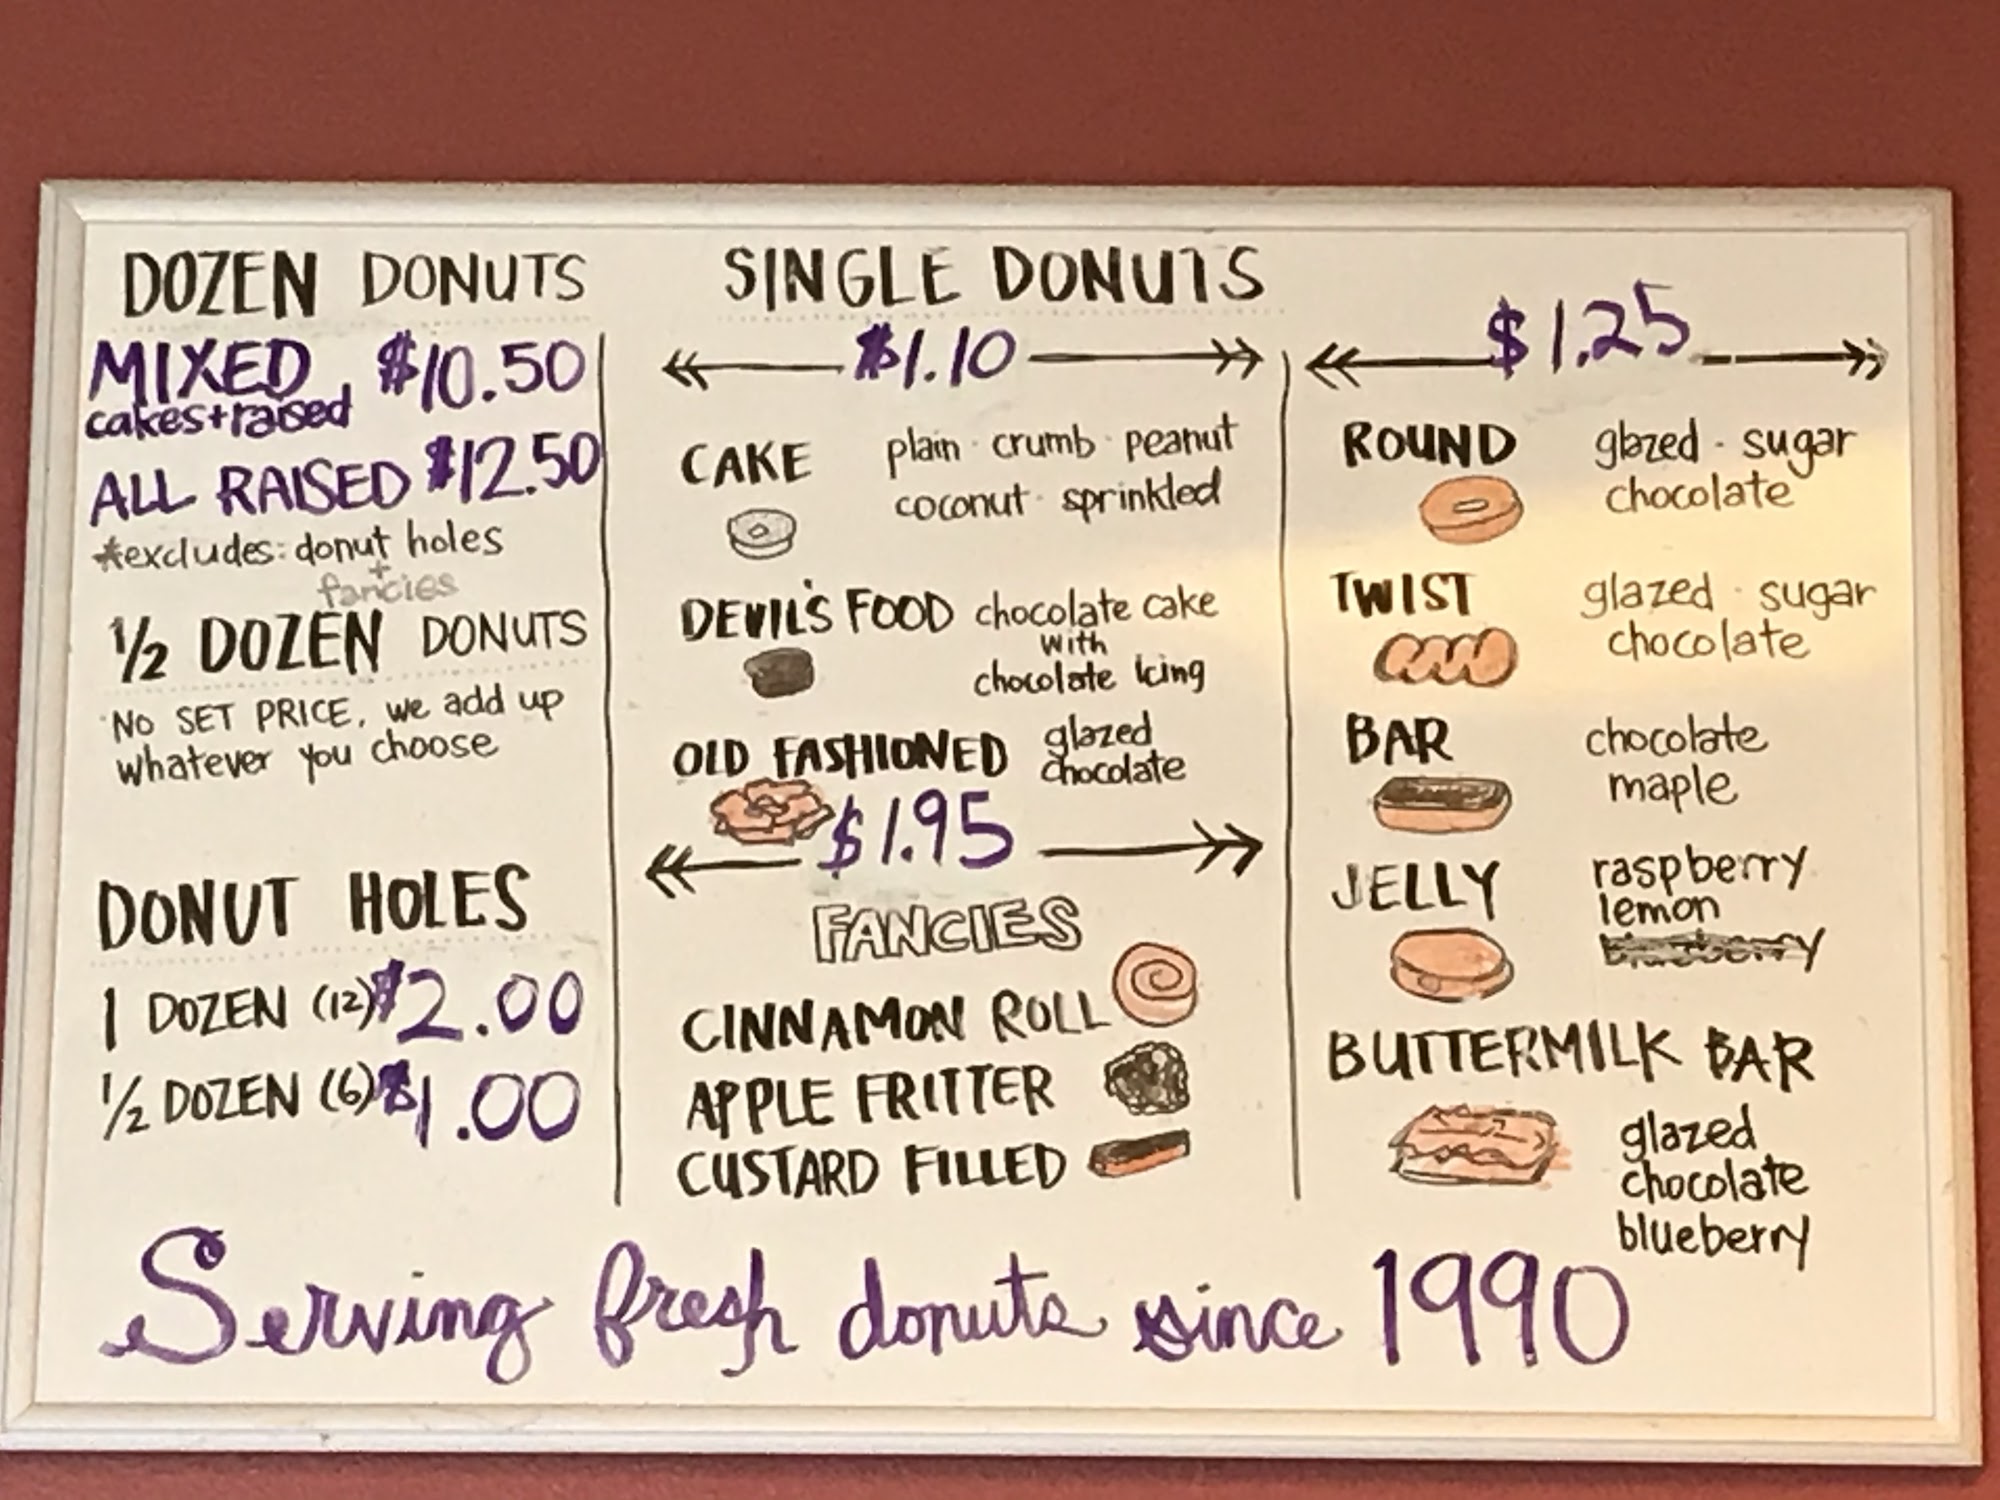 DOZEN DONUTS
MIXED $10.50
cakes+raised
ALL RAISED $12.50
*excludes: donut holes
+
fancies
1/2 DOZEN DONUTS
NO SET PRICE, we add up
whatever you choose
DONUT HOLES
1 DOZEN (12) $2.00
1/2 DOZEN (6) $1.00
SINGLE DONUTS
$1.10
CAKE plain · crumb · peanut
coconut · sprinkled
DEVIL'S FOOD chocolate cake
with
chocolate icing
OLD FASHIONED glazed
chocolate
$1.95
FANCIES
CINNAMON ROLL
APPLE FRITTER
CUSTARD FILLED
$1.25
ROUND glazed · sugar
chocolate
TWIST glazed · sugar
chocolate
BAR chocolate
maple
JELLY raspberry
lemon
blueberry
BUTTERMILK BAR
glazed
chocolate
blueberry
Serving fresh donuts since 1990